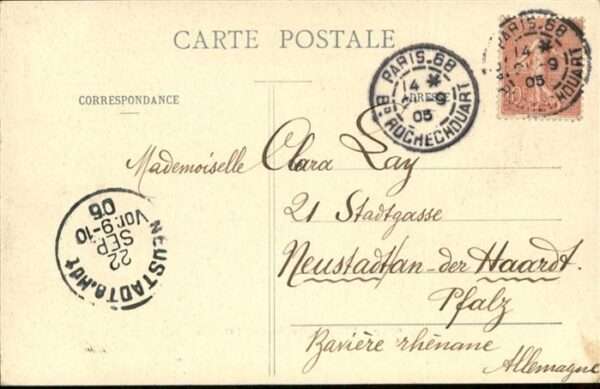 CARTE POSTALE
CORRESPONDANCE
ADRESSE
PARIS-68
14 * 9
05
Bd ROCHECHOUART
PARIS-68
14 *
9
05
ROCHECHOUART
Mademoiselle Clara Lay
21 Stadtgasse
Neustadt/an-der Haardt.
Pfalz
Bavière rhénane
Allemagne
NEUSTADT a. Hdt
22
SEP
Vor. 9-10
05